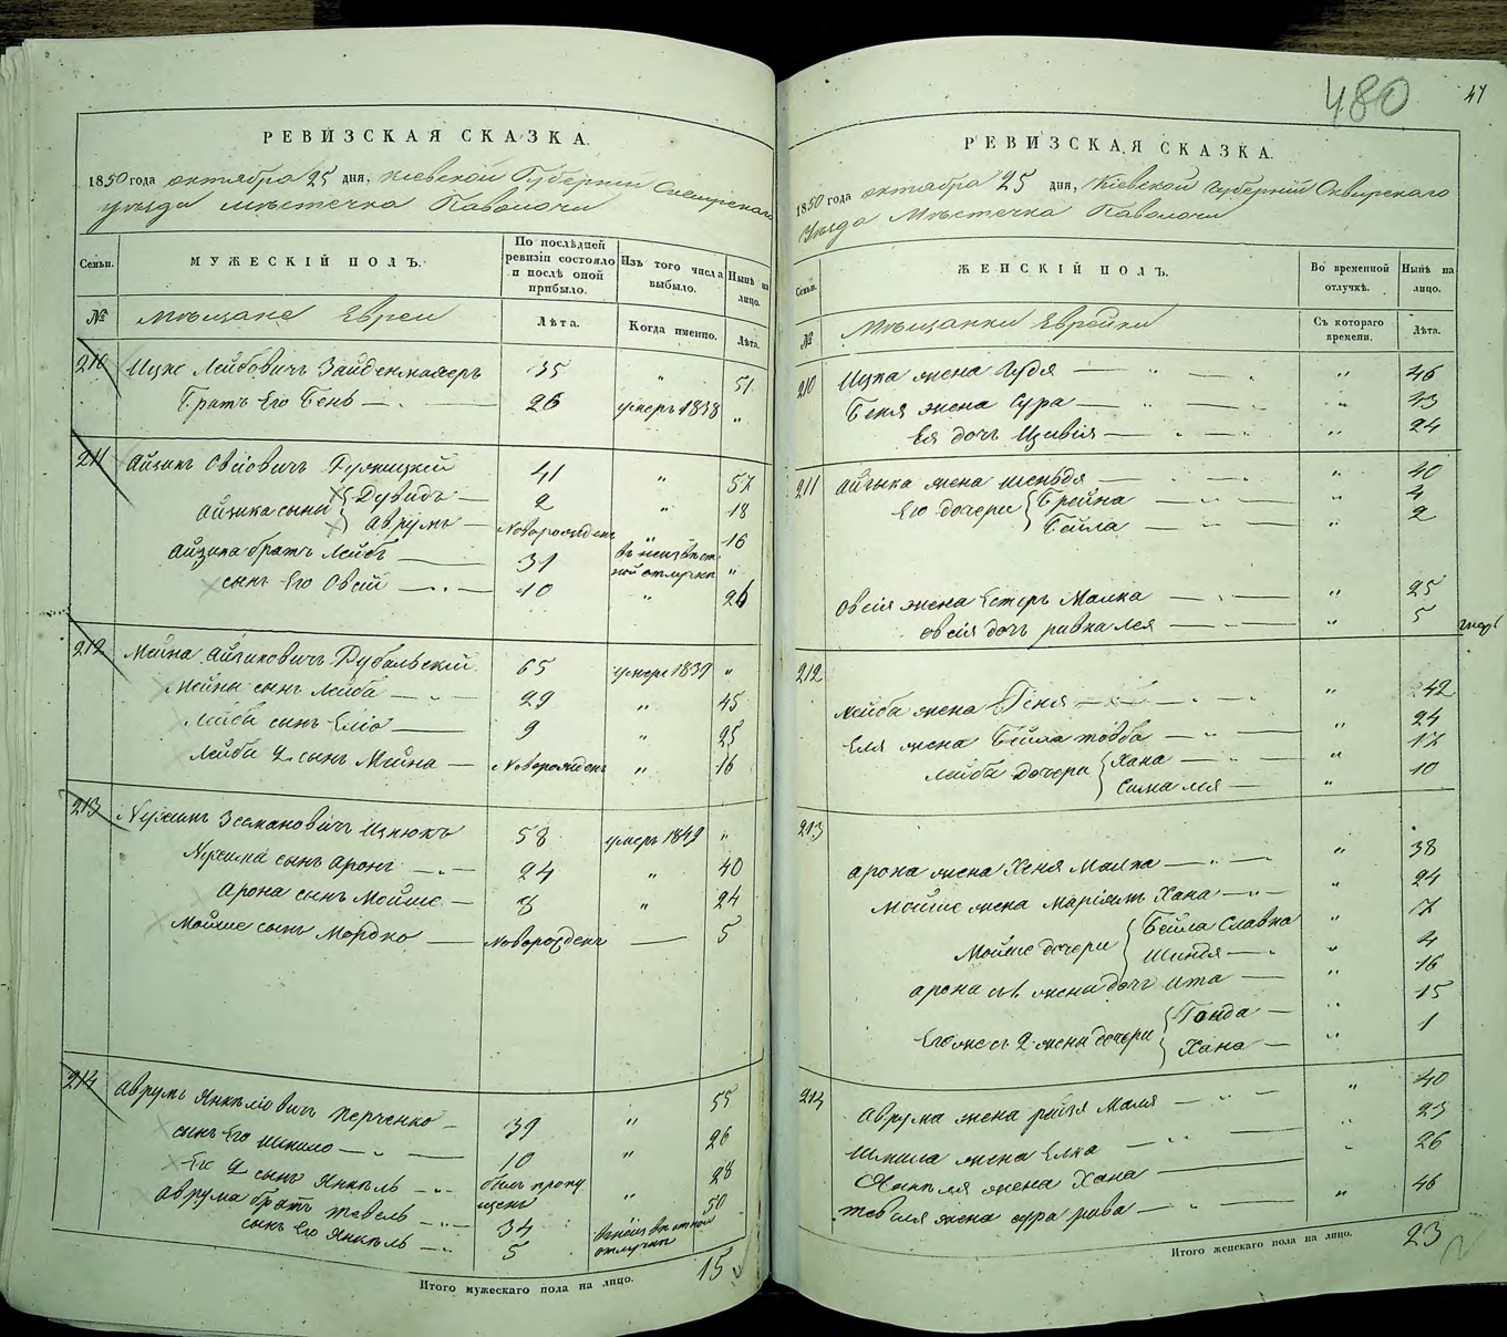 РЕВИЗСКАЯ СКАЗКА.
1850 года октября 25 дня, Кіевской Губерніи Сквирскаго
уѣзда мѣстечка Паволочи
Семьи.
МУЖЕСКІЙ ПОЛЪ.
По послѣдней ревизіи состояло и послѣ оной прибыло.
Изъ того числа выбыло.
Нынѣ на лицо.
№
Мѣщане Евреи
Лѣта.
Когда именно.
Лѣта.
210 Ицко Лейбовичъ 35 " 51
Братъ Его Бень 26 умеръ 1838 "
211 Айзикъ Овсіовичъ 41 " 57
Айзика сыны { Дувидъ 2 " 18
Аврумъ Новорожденъ " 16
Айзика братъ Лейбъ 31 въ неизвѣстной отлучки "
сынъ Его Овсій 10 " 26
212 Мейна Айзиковичъ Дубальскій 65 умеръ 1839 "
Мейны сынъ Лейба 29 " 45
Лейбы сынъ Еліо 9 " 25
Лейбы 2 сынъ Мейна Новорожденъ " 16
213 Нухимъ Зельмановичъ 58 умеръ 1849 "
Нухима сынъ Аронъ 24 " 40
Арона сынъ Мойше 8 " 24
Мойше сынъ Мордко Новорожденъ — 5
214 Аврумъ Янкеліовичъ Перченко 39 " 55
сынъ Его Шмило 10 " 26
Его 2 сынъ Янкель былъ пропущенъ " 28
Аврума братъ Тевель 34 50
сынъ Его Янкель 5 въ неизвѣстной отлучки
Итого мужескаго пола на лицо. 15
480
47
РЕВИЗСКАЯ СКАЗКА.
1850 года октября 25 дня, Кіевской Губерніи Сквирскаго
Уѣзда Мѣстечка Паволочи
Семьи.
ЖЕНСКІЙ ПОЛЪ.
Во временной отлучкѣ.
Нынѣ на лицо.
№
Мѣщанки Еврейки
Съ котораго времени.
Лѣта.
210 Ицка жена Гудя " 46
Беня жена Сура " 43
Ея дочь Цивія " 24
211 Айзыка жена Шендля " 40
Его дочери { Брейна " 4
Бейла " 2
Овсія жена Естеръ Малка " 25
Овсія дочь Ривка Лея " 5
212
Лейба жена " 42
Еля жена Бейла Товба " 24
Лейба дочери { Хана " 17
Сима Лея " 10
213
Арона жена Хеня Малка " 38
Мойше жена Маріямъ Хана " 24
Мойше дочери { Бейла Славка " 7
Шиндя " 4
Арона съ 1. жены дочь Ита " 16
Его же съ 2. жены дочери { Гонда " 15
Хана " 1
214 Аврума жена Рейзя Маля " 40
Шмила жена Елка " 23
Янкеля жена Хана " 26
Тевеля жена Сура Рива " 46
Итого женскаго пола на лицо. 23